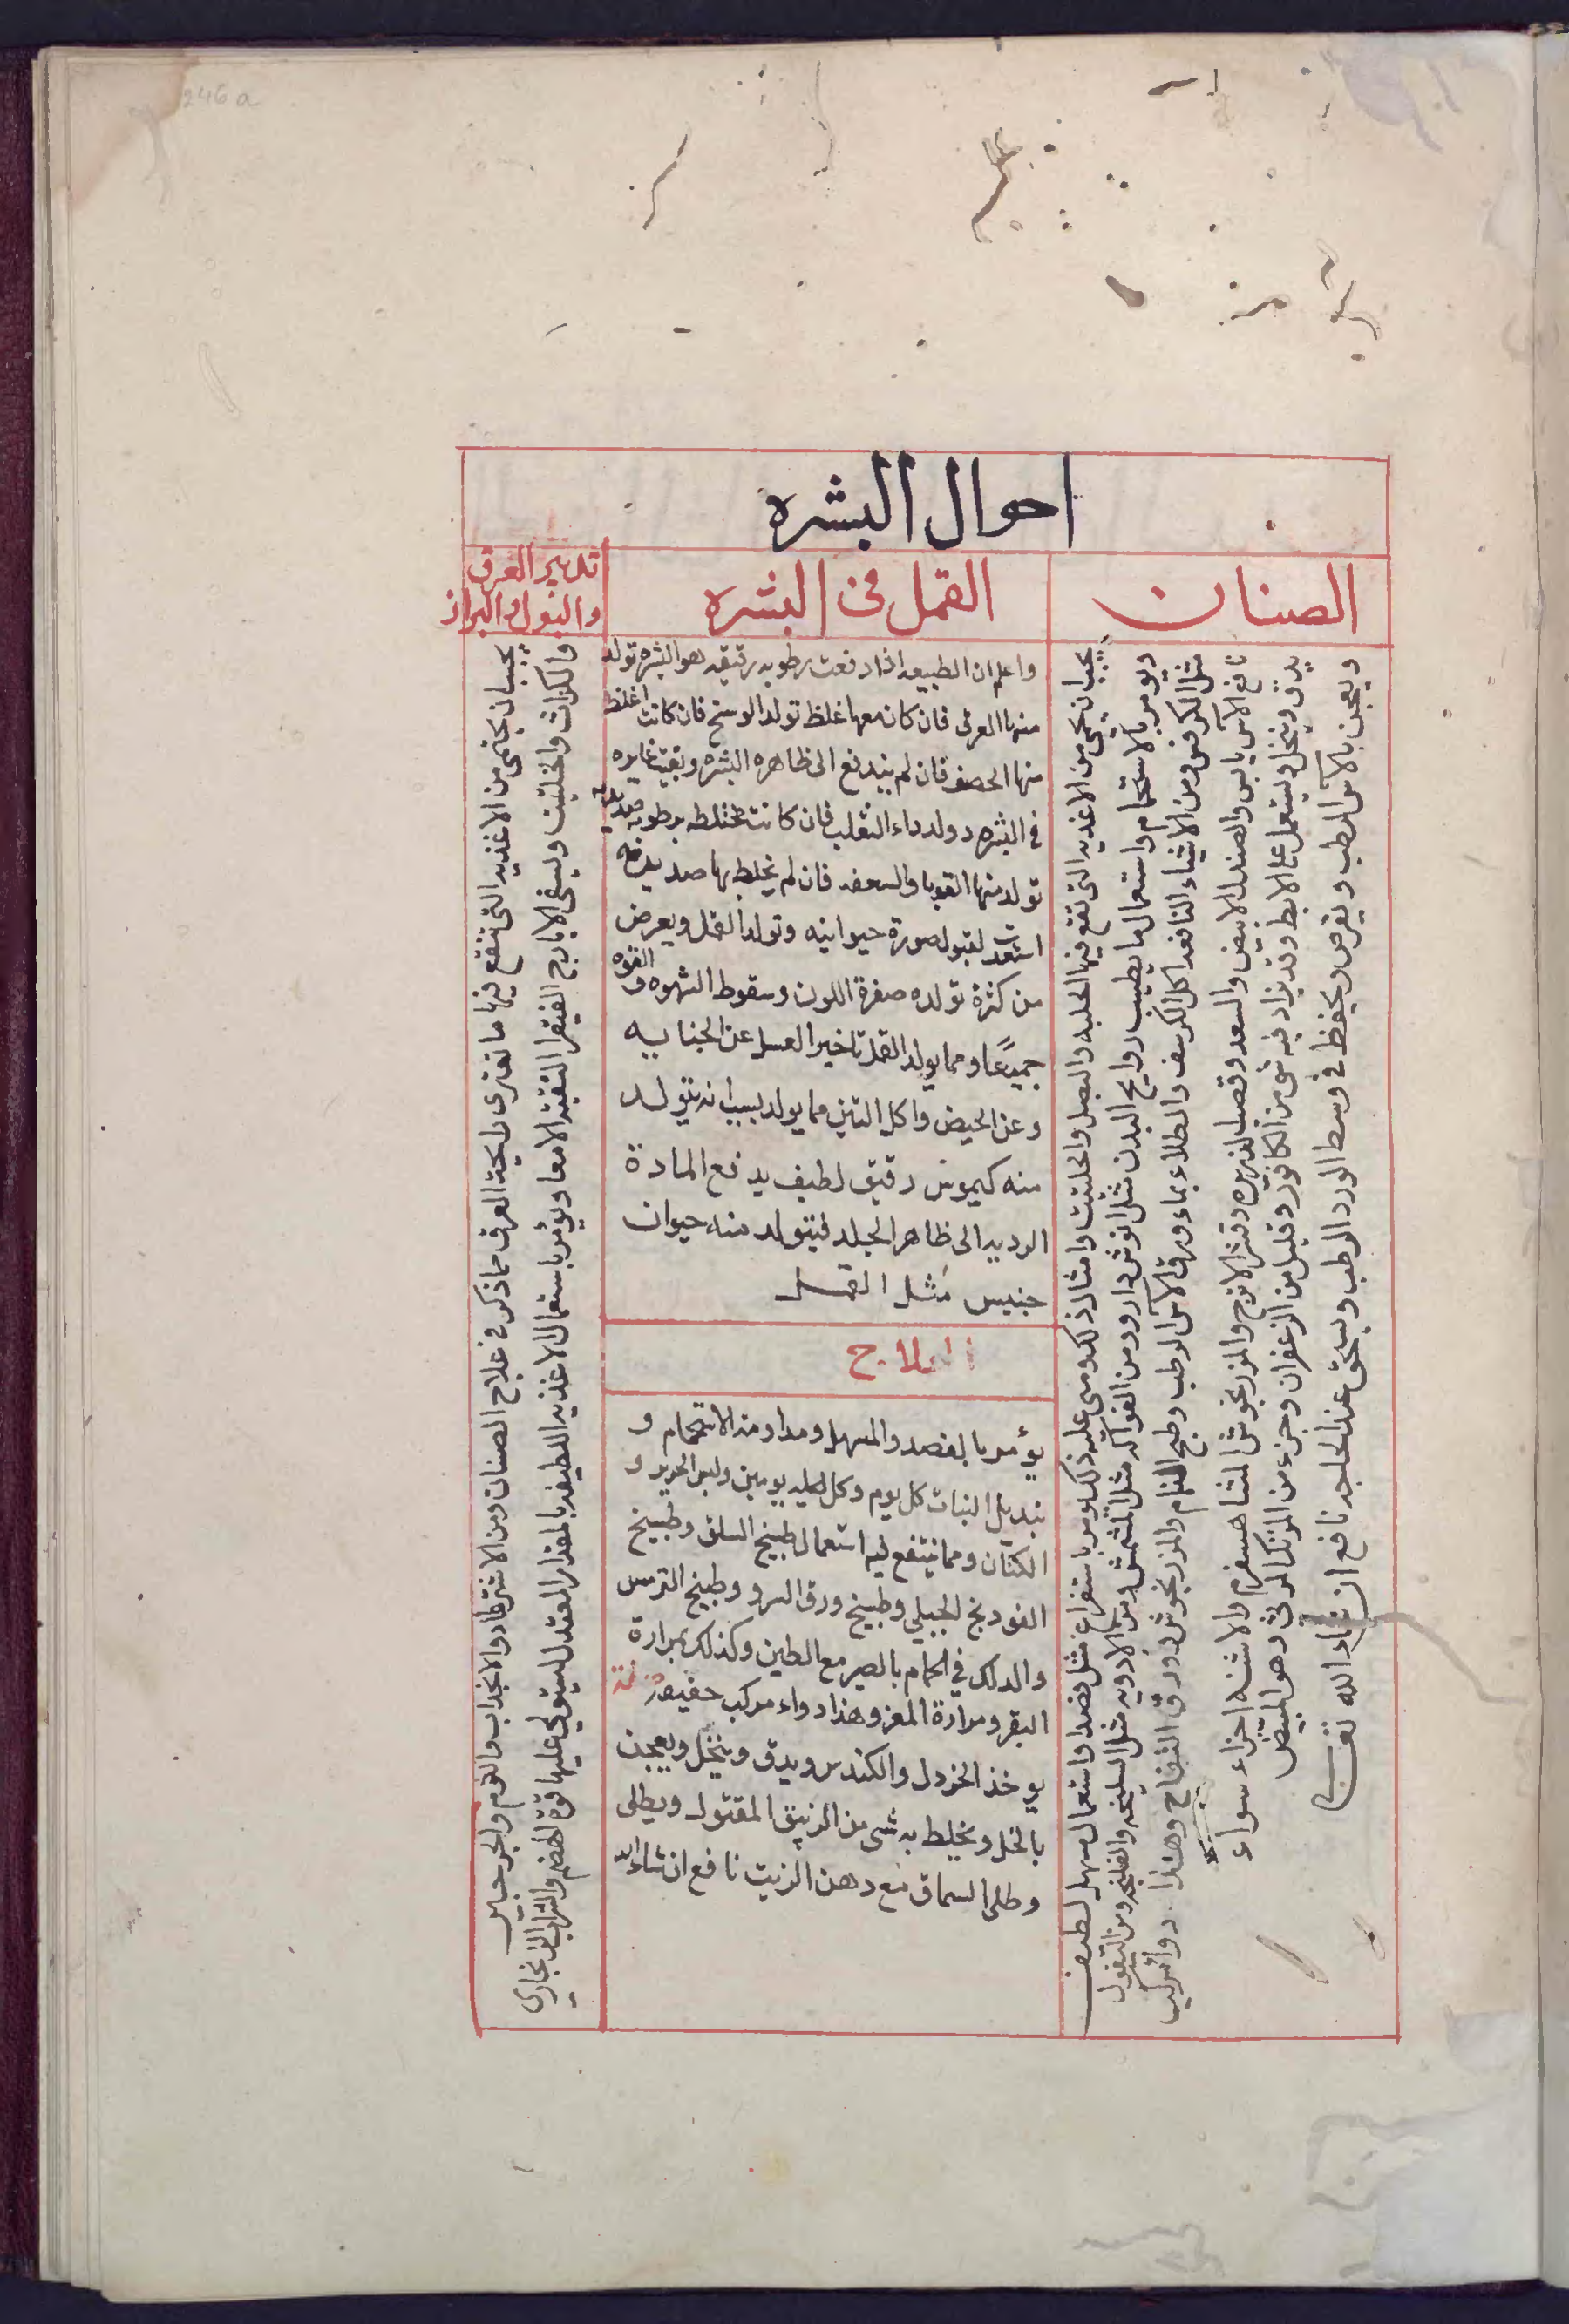 246a
احوال البشره
الصنان
القمل فى البشره
تدبير العرق
والبول والبراز
يجب ان يحمى من الاغذيه التى تقع فيها الحلبه والبصل والحلتيت وامثال ذلك ومى عليه ذلك يومر باستفراغ مثل فصد واستعمال مسهل لطيف
ويومر بالاستحمام واستعمال ما يطيب روايح البدن مثل انوش دارو ومن الفواكه مثل المشمش ومن الادويه مثل السليخه والفلنجه ومن البقول
مثل الكرفس ومن الاشياء النافعه اكل الكرسف والطلاء بماء ورق الاس الرطب وطبخ النمام والمرزنجوش وورق التفاح وهذا دوا مركب
نافع الاس يابس والصندل الابيض والسعد وقصب الذريره وقشر الاترج والمرزنجوش الشاهسفرم والاشنه اجزاء سواء
يدق وينخل ويستعمل على الابط وقد يزاد فيه شى من الكافور وقليل من الزعفران وجزء من المرتك المربى وهو المبيض
ويعجن بالاس الرطب ويقرص ويحفظ فى وسط الورد الرطب ويسحق عند الحاجه نافع ان شاء الله تعالى
واعلم ان الطبيعه اذا دفعت رطوبه رقيقه نحو البشره تولد
منها العرق فان كان معها غلظ تولد الوسخ فان كانت اغلظ
منها الحصف فان لم يندفع الى ظاهره البشره وبقيت غايره
فى البشره ولد داء الثعلب فان كانت مختلطه برطوبه صديديه
تولد منها القوبا والسعفه فان لم يخلط بها صديديه
استعدت لقبول صورة حيوانيه وتولد القمل ويعرض
من كثرة تولده صفرة اللون وسقوط الشهوه و القوه
جميعًا ومما يولد القمل تاخير الغسل عن الجنابه
وعن الحيض واكل التين مما يولد بسبب انه يتولد
منه كيموس رقيق لطيف يدفع المادة
الرديه الى ظاهر الجلد فيتولد منه حيوان
خبيس مثل القمل
العلاج
يؤمر بالفصد والمسهل ومداومة الاستحمام و
تبديل الثياب كل يوم وكل ليله يومين ولبس الحرير و
الكتان ومما ينتفع فيه استعمال طبيخ السلق وطبيخ
الفودنج الجبلي وطبيخ ورق السرو وطبيخ الترمس
والدلك في الحمام بالصبر مع الطين وكذلك بمرارة
البقر ومرارة المعز وهذا دواء مركب خفيف
يوخذ الخردل والكندس ويدق وينخل ويعجن
بالخل ويخلط به شى من الزيبق المقتول ويطلى
وطلى السماق مع دهن الزيت نافع ان شاء الله
يجب ان يحتمى من الاغذيه التى تقع فيها ما تغيرى رايحة العرق مما ذكر فى علاج الصنان ومن الاشترغاز والانجدان والثوم والجرجير
والكراث والحلتيت ويسقى الايارج الفيقرا لتنقية الامعا ويؤمر باستعمال الاغذيه اللطيفه بالمقدار المعتدل ليستولي عليها قوة الهضم والشراب الريحاني